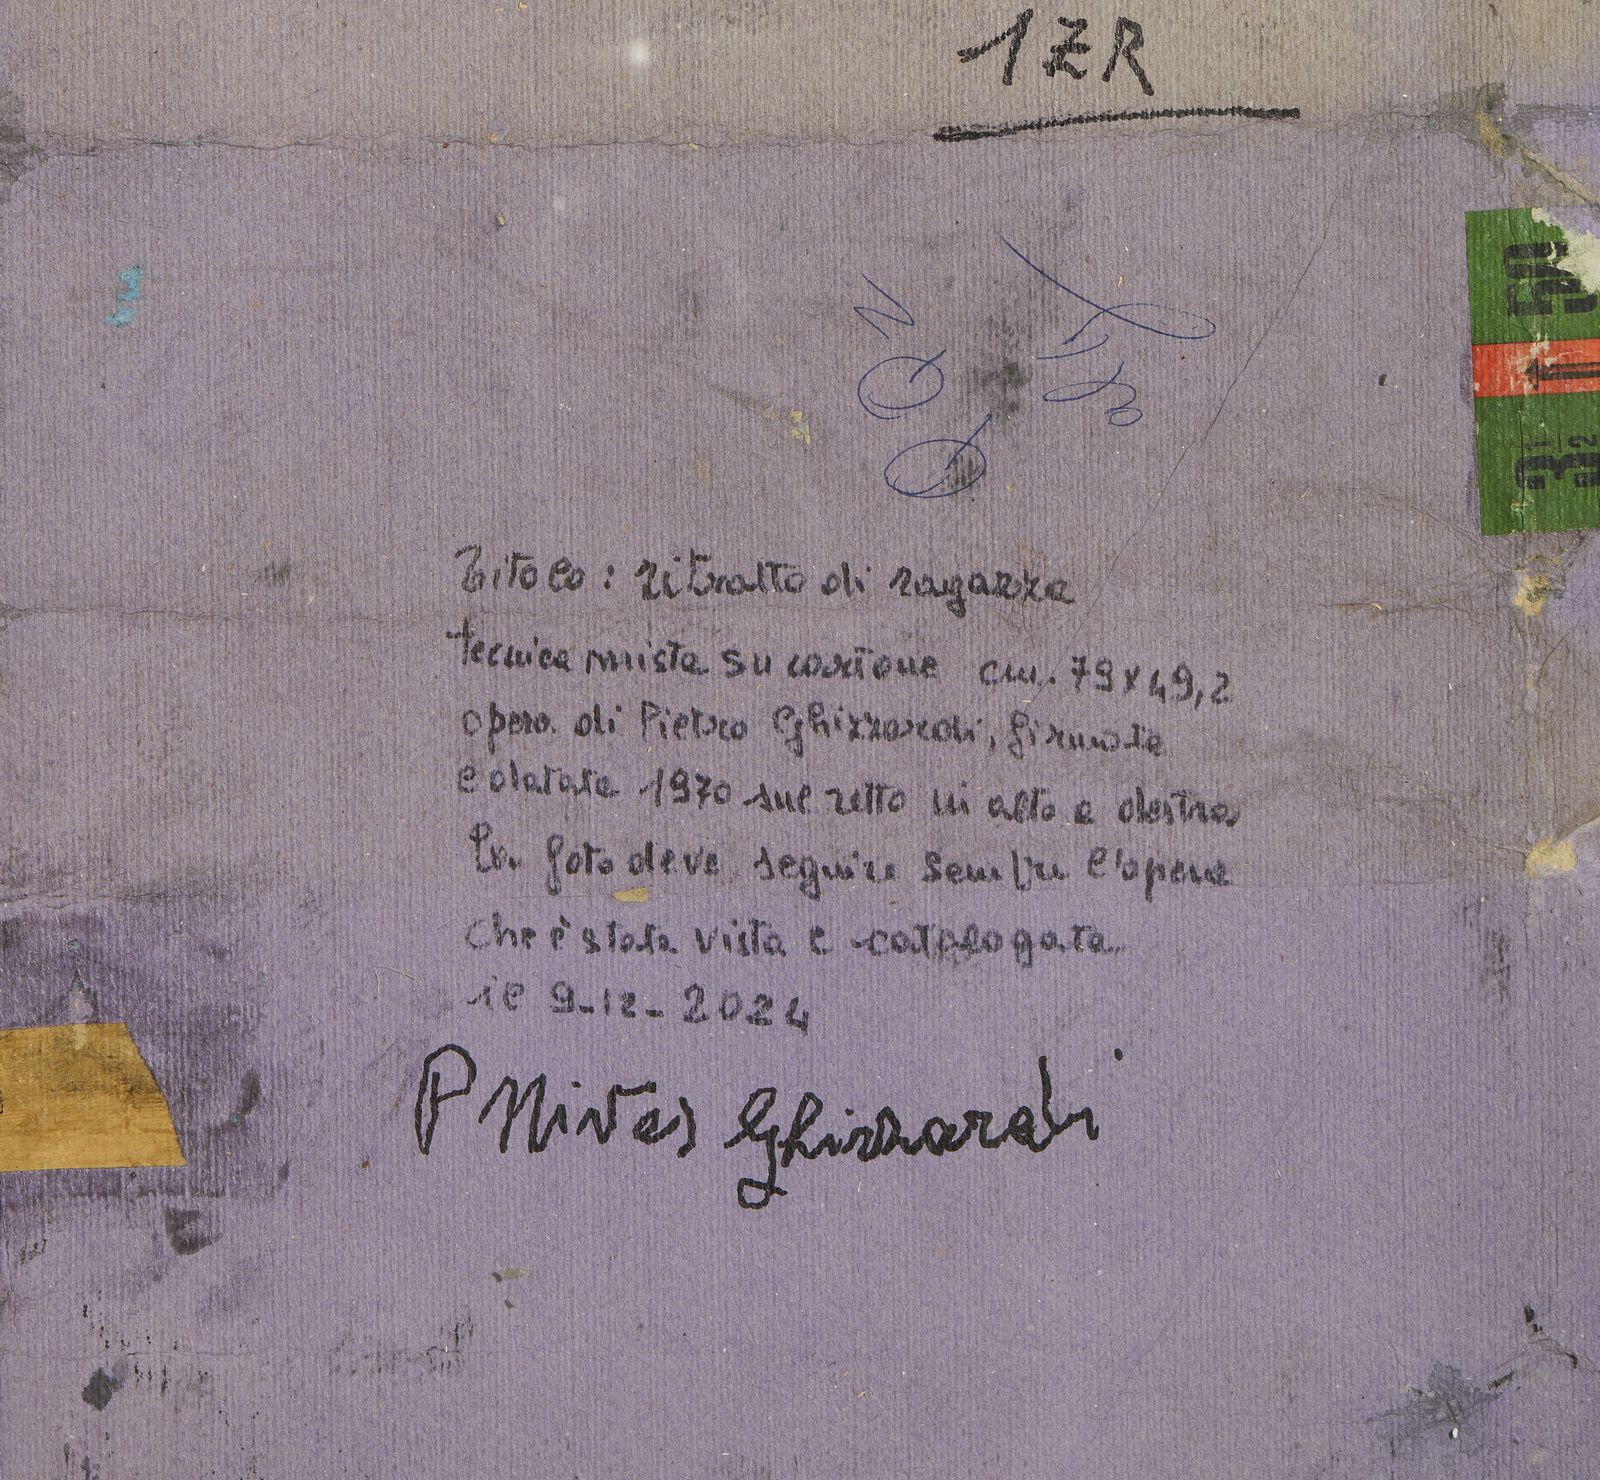 1ZR
50
3 1/2
Titolo: ritratto di ragazza
tecnica mista su cartone cm. 79x49,2
opera di Pietro Ghizzardi, firmata
e datata 1970 sul retto in alto a destra
La foto deve seguire sempre l'opera
che è stata vista e catalogata
il 9-12-2024
P Nives Ghizzardi